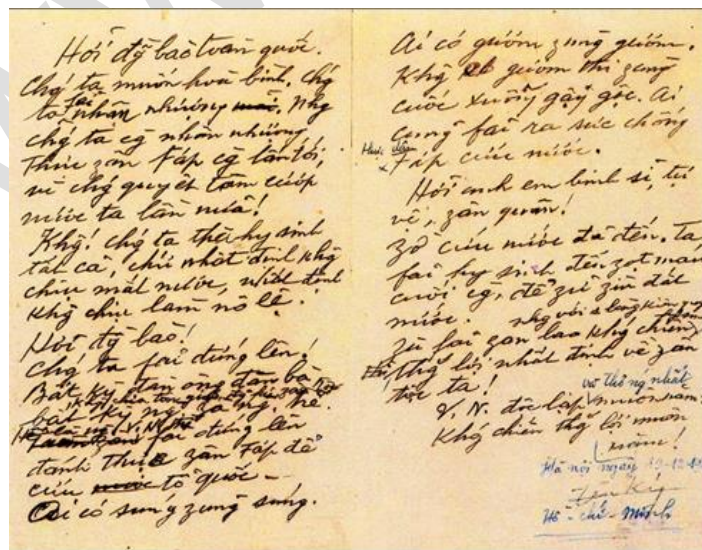 Hỡi đg̃ bào toàn quốc.
Chǵ ta muốn hoà bình, chǵ
ta fải nhân nhượng. Nhg
chǵ ta cg̃ nhân nhượng
thực zân Fáp cg̃ lấn tới,
vì chǵ quyết tâm cướp
nước ta lần nữa!
Khg̃! chǵ ta thà hy sinh
tất cả, chứ nhất định khg̃
chịu mất nước, nhất định
khg̃ chịu làm nô lệ.
Hỡi đg̃ bào!
Chǵ ta fải đứng lên!
Bất kỳ đàn ông đàn bà
bất kỳ ng` già ng` trẻ.
fải đứng lên
đánh thực zân Fáp để
cứu tổ quốc –
Ai có súng zùng súng.
Ai có gươm zùng gươm.
Khg̃ có gươm thì zùng
cuốc xuổng gậy gộc. Ai
cũng fải ra sức chống
thực zân
Fáp cứu nước.
Hỡi anh em binh sĩ, tự
vệ, zân quân!
Zờ cứu nước đã đến. Ta
fải hy sinh đến zọt máu
cuối cg̀, để zữ zìn đất
nước.
Zù fải zan lao khǵ chiến,
nhg với 1 lòng kiên quyết
thg̃ lợi nhất định về zân
tộc ta!
V.N. độc lập và thống nhất muôn năm!
Khǵ chiến thg̃ lợi muôn
năm!
Hà nội ngày 19-12-46
Hồ-chí-Minh